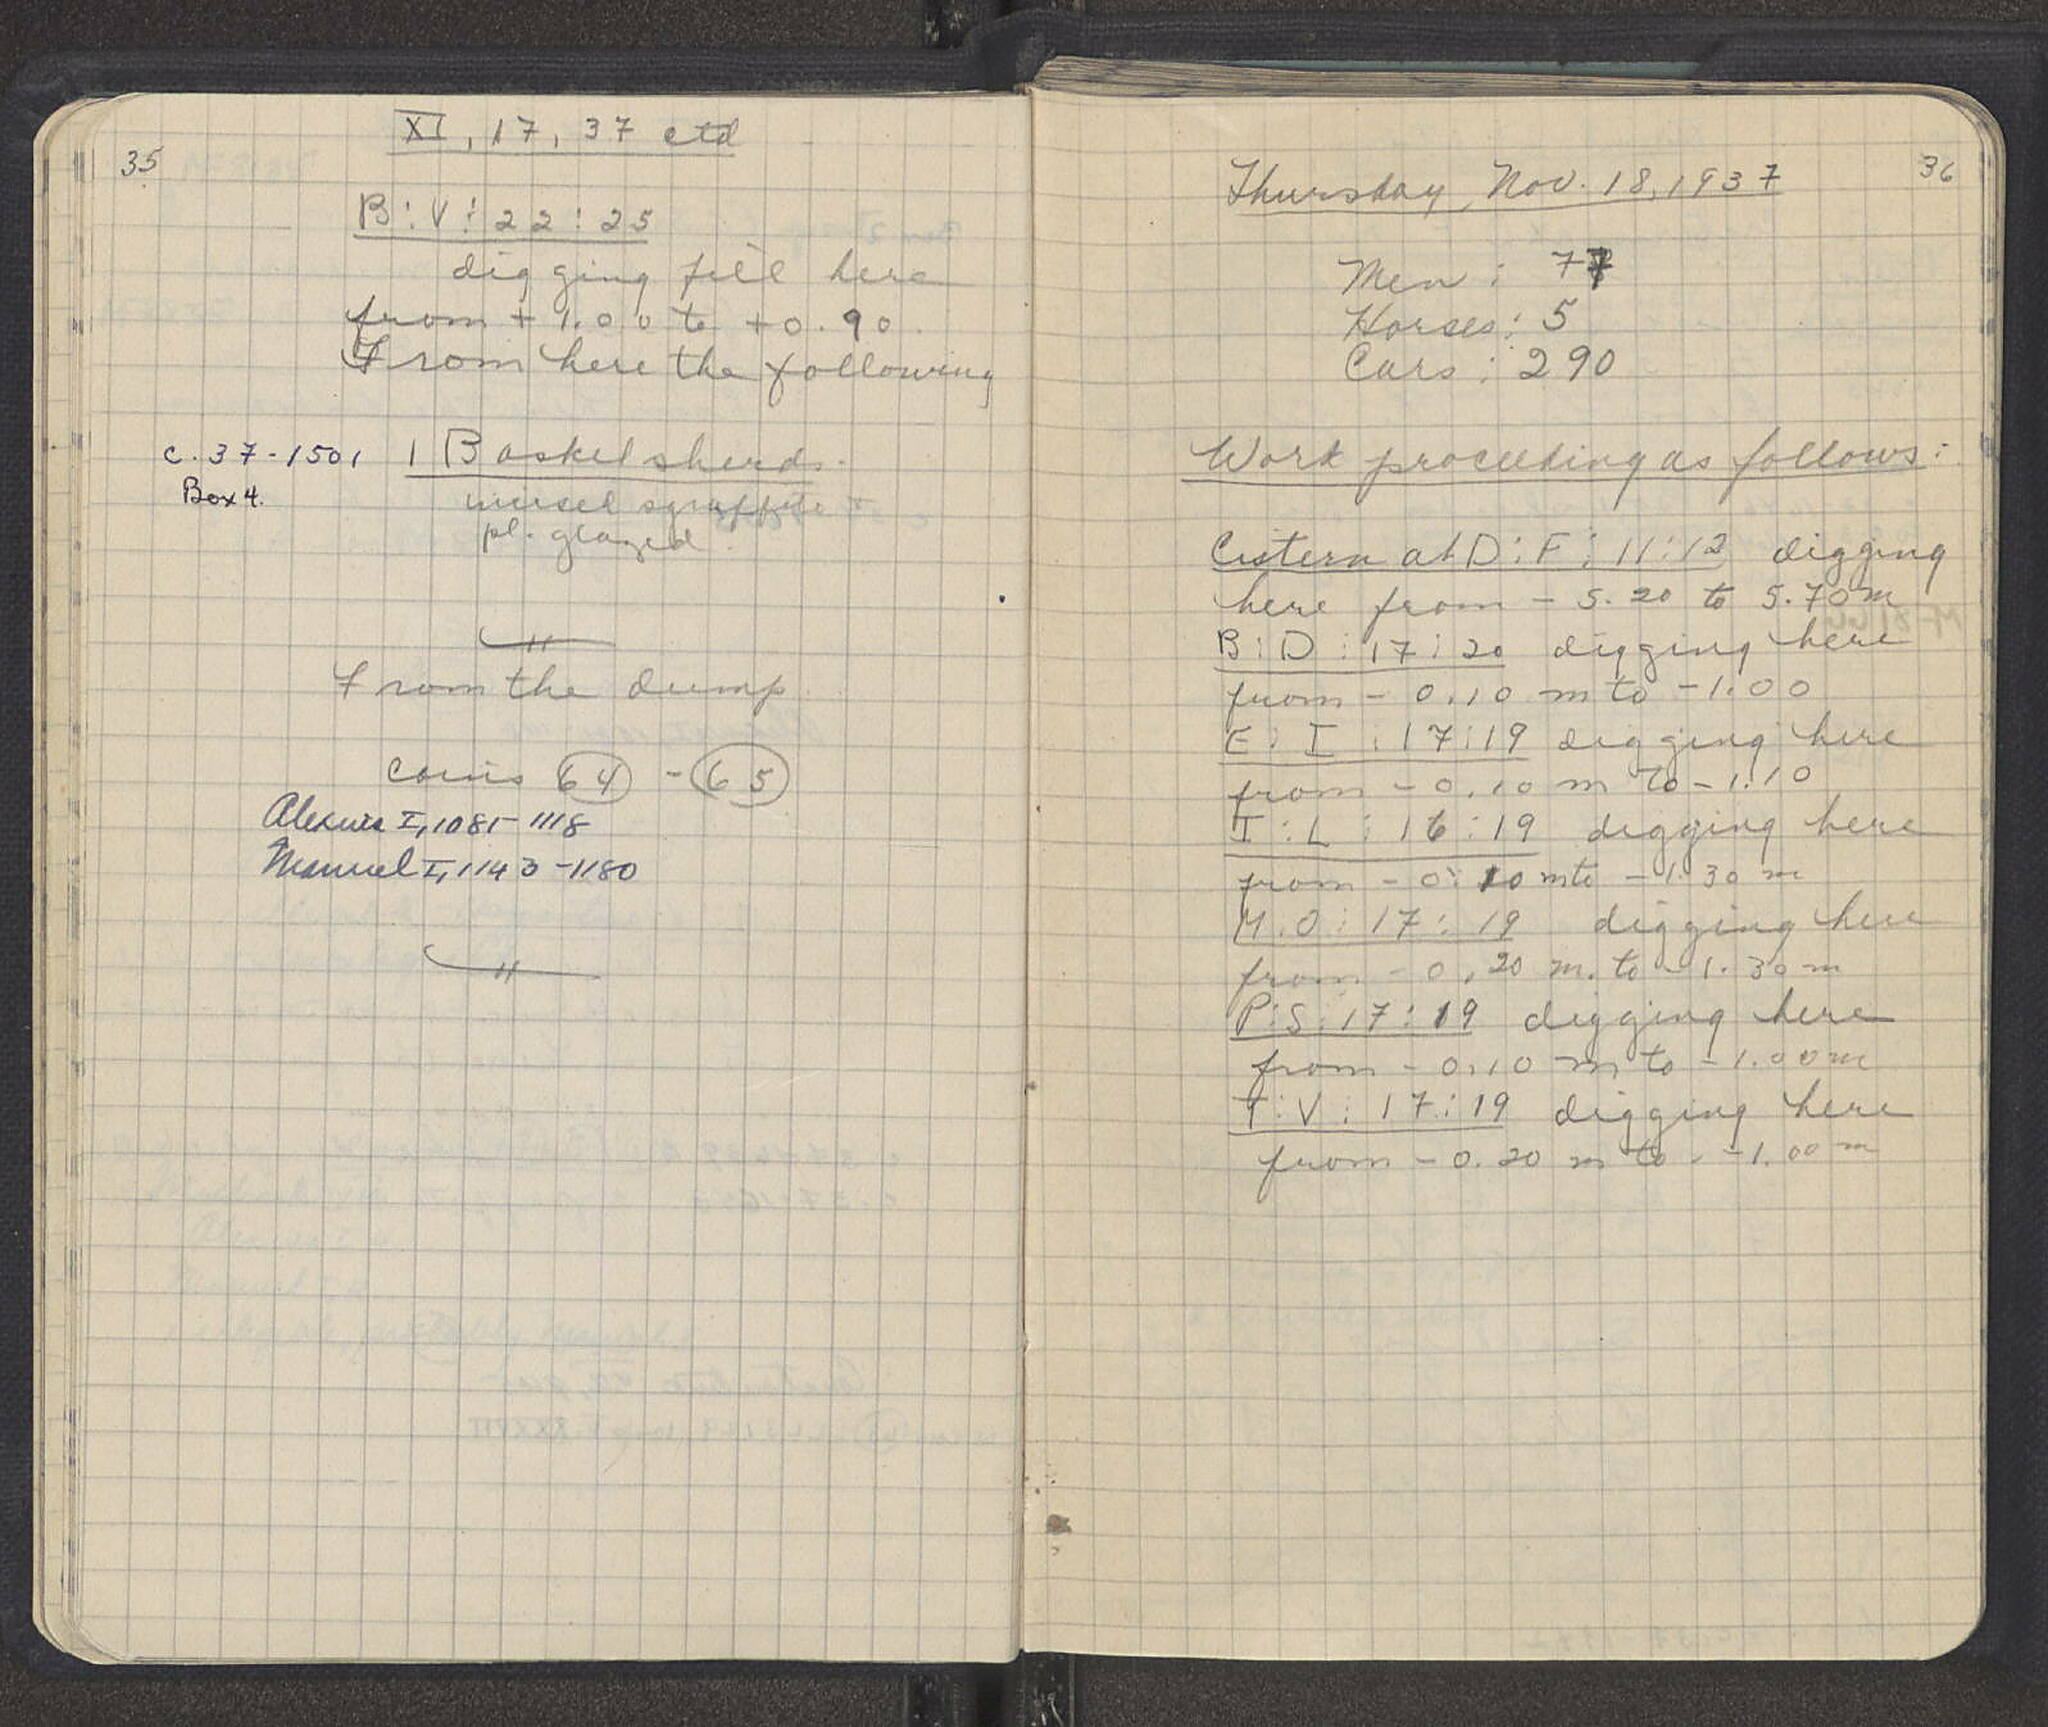 35
XI, 17, 37 ctd
B:V:22:25
digging fill here
from +1.00 to +0.90.
From here the following
C.37-1501 1 Basket sherds.
Box 4.
pl. glazed.
From the dump
coins 64 - 65
Alexius I, 1081-1118
Manuel I, 1143-1180
36
Thursday, Nov. 18, 1937
Men: 77
Horses: 5
Cars: 290
Work proceeding as follows:
Cistern at D:F:11:12 digging
here from - 5.20 to 5.70 m
B:D:17:20 digging here
from - 0.10 m to -1.00
E:I:17:19 digging here
from - 0.10 m to -1.10
I:L:16:19 digging here
from - 0.10 m to -1.30 m
M:O:17:19 digging here
from - 0.20 m. to -1.30 m
P:S:17:19 digging here
from - 0.10 m to -1.00 m
T:V:17:19 digging here
from - 0.20 m to - -1.00 m